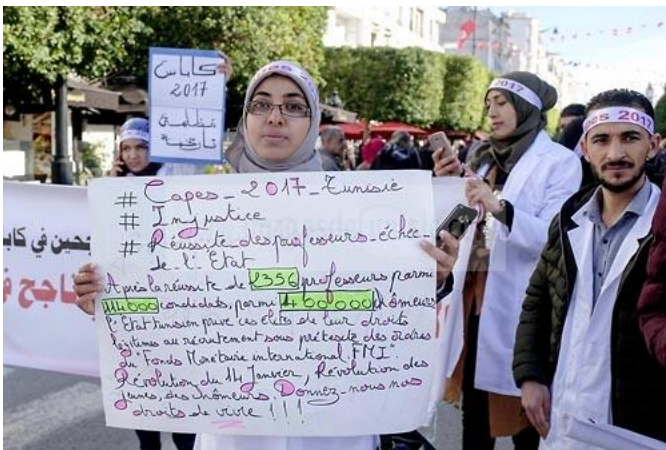 كاباس
2017
مظلمة
تاريخية
Capes 2017
2017
# Capes_2017_Tunisie
# Injustice
# Réussite_des_professeurs_échec_
de_l'Etat
Après la réussite de 2356 professeurs parmi
114000 candidats, parmi 400000 chômeurs
l'Etat tunisien prive ces élites de leur droits
légitimes au recrutement sous prétexte des ordres
du "Fonds Monétaire international. FMI".
Révolution du 14 Janvier, Révolution des
jeunes, des chômeurs. Donnez-nous nos
droits de vivre !!!
جحين في كابا
ناجح في